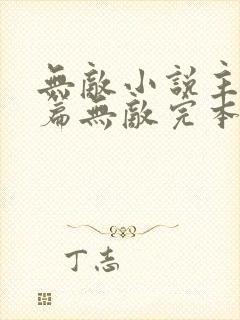 無敵小說主
篇無敵完本
丁志